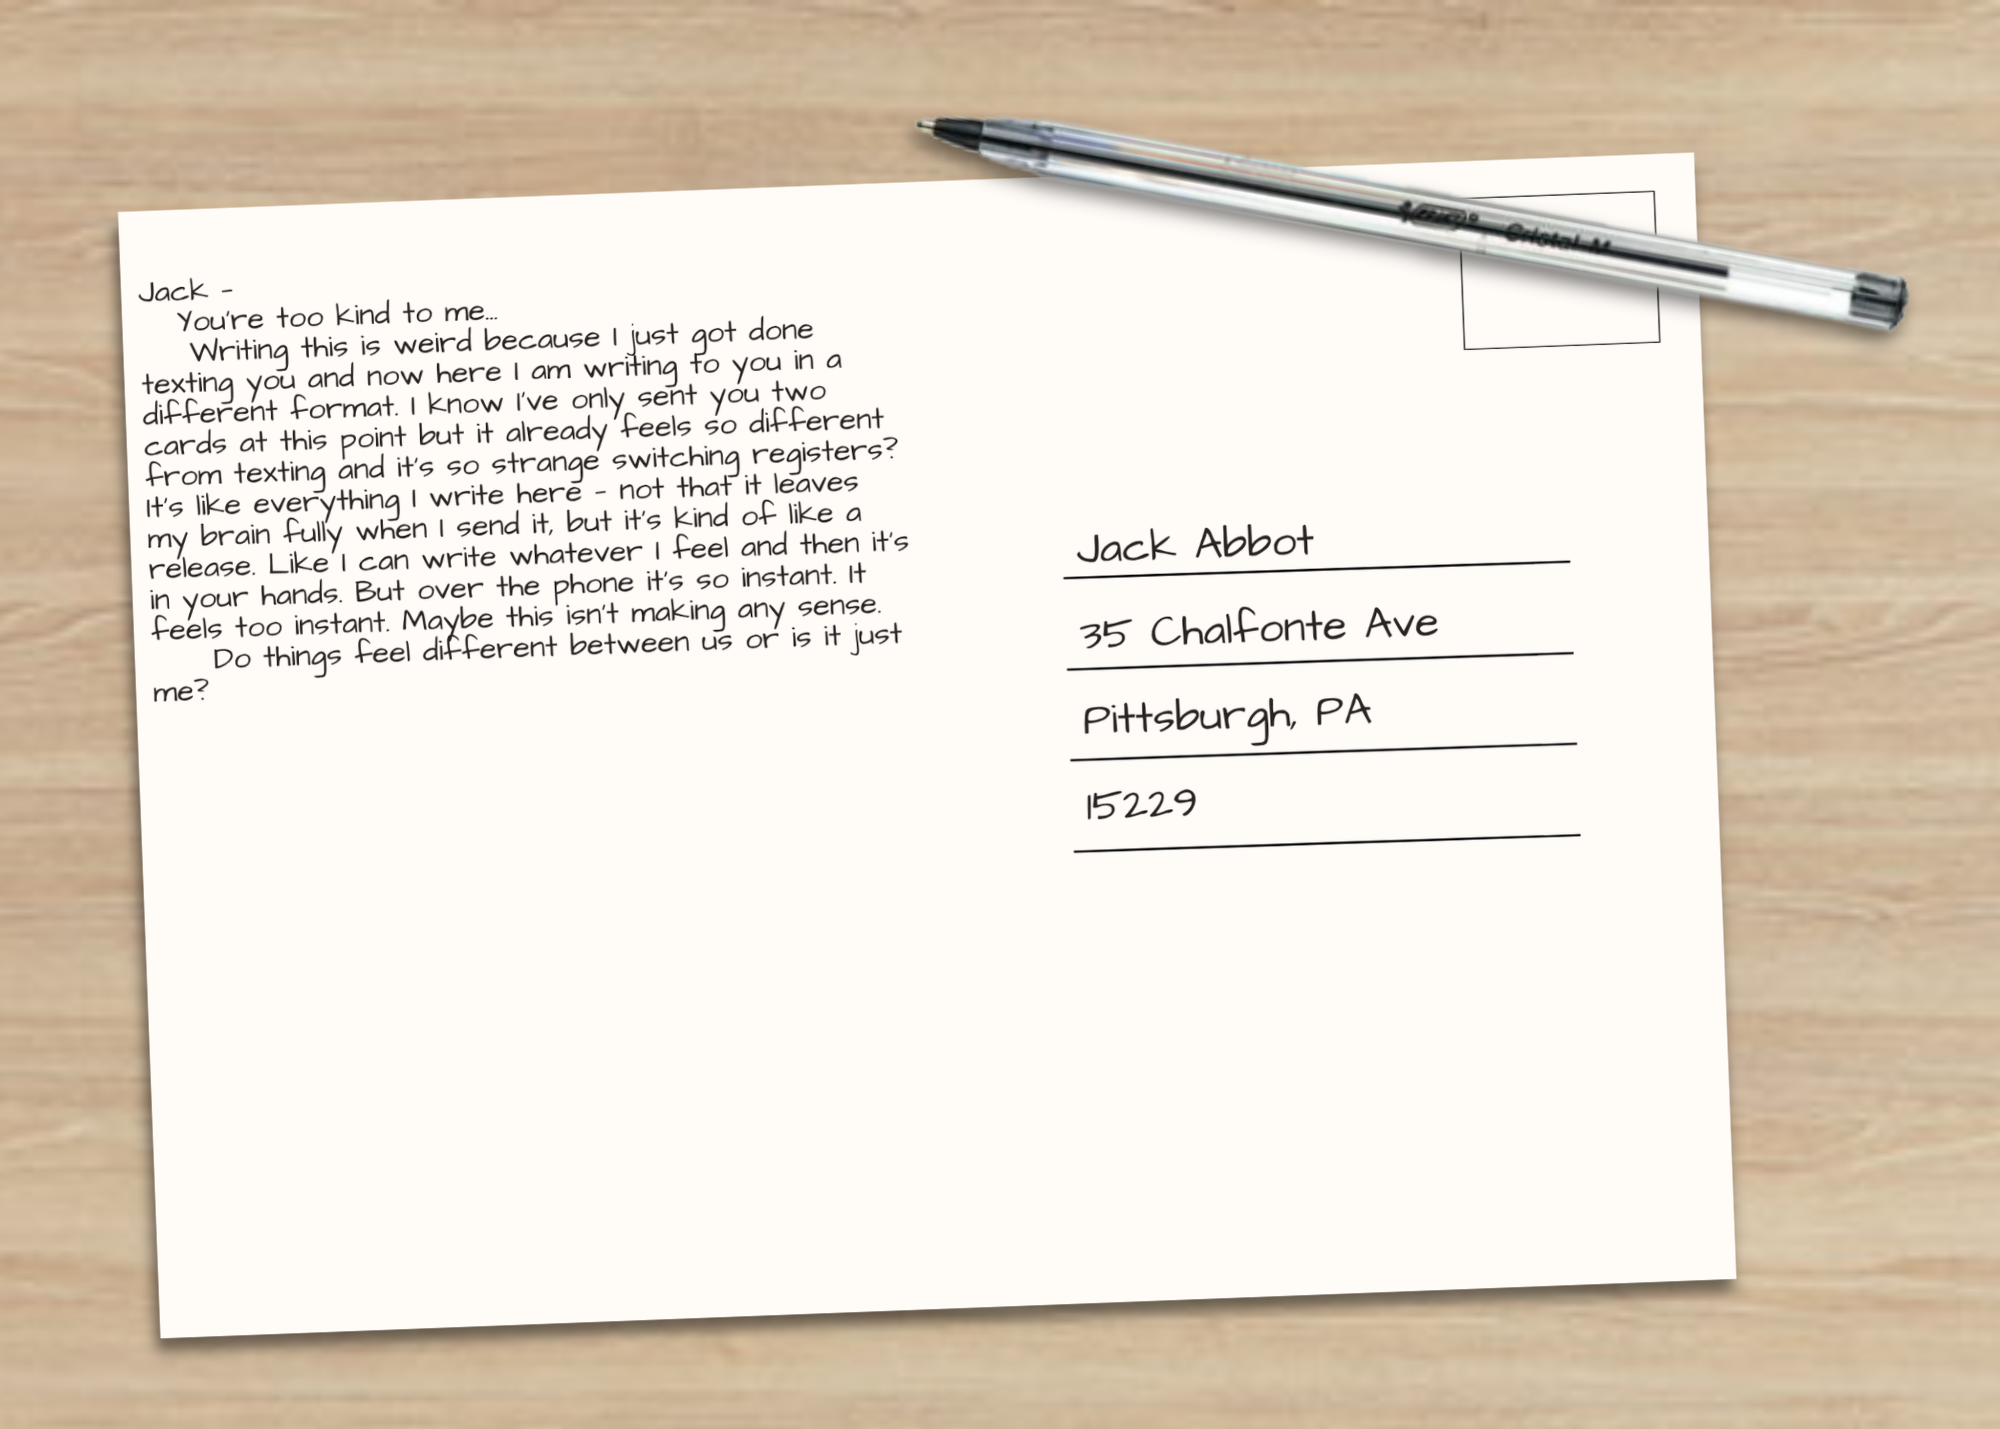 Jack -
You're too kind to me...
Writing this is weird because I just got done
texting you and now here I am writing to you in a
different format. I know I've only sent you two
cards at this point but it already feels so different
from texting and it's so strange switching registers?
It's like everything I write here - not that it leaves
my brain fully when I send it, but it's kind of like a
release. Like I can write whatever I feel and then it's
in your hands. But over the phone it's so instant. It
feels too instant. Maybe this isn't making any sense.
Do things feel different between us or is it just
me?
Cristal M
Jack Abbot
35 Chalfonte Ave
Pittsburgh, PA
15229